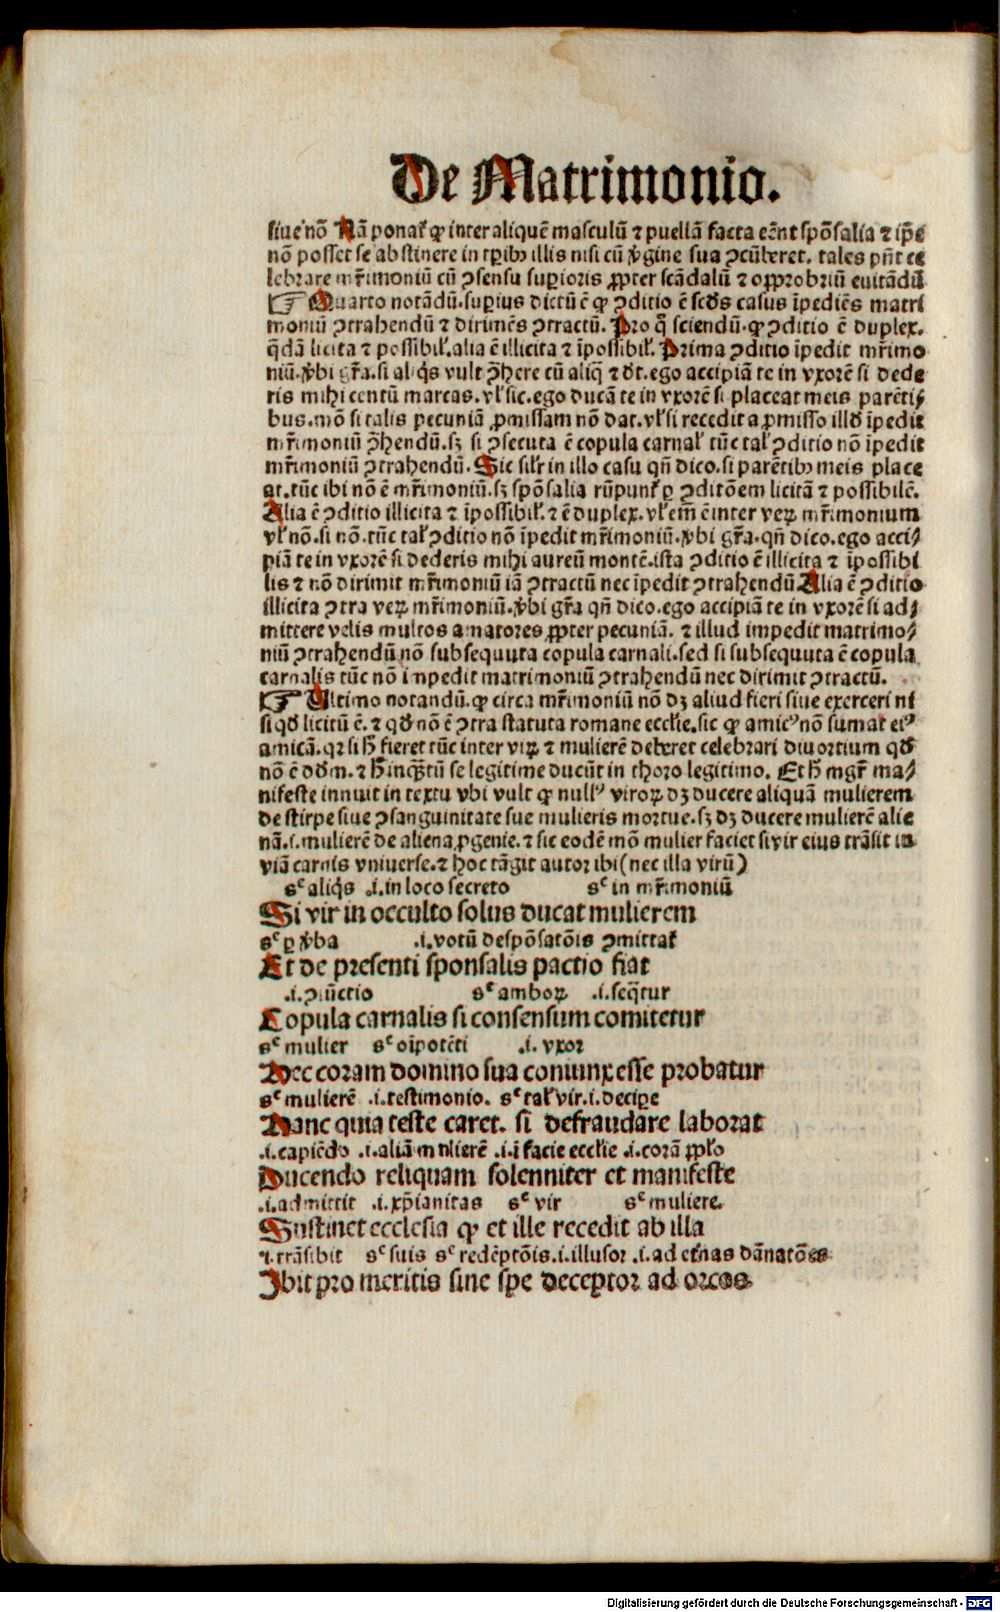 De Matrimonio.
siue nõ Nã ponat̃ ꝙ inter aliquẽ masculũ ⁊ puellã facta eẽnt spõsalia ⁊ ip̃e
nõ posset se abstinere in tꝑibꝰ illis nisi cũ ꝟgine sua ꝯcũberet. tales pñt ce
lebrare mr̃imoniũ cũ ꝯsensu suꝑioris ꝓpter scãdalũ ⁊ oꝓprobriũ euitãdũ
☞ Quarto notãdũ. suꝑius dictũ ẽ ꝙ ꝯditio ẽ scd̃s casus ĩpediẽs matri
moniũ ꝯtrahendũ ⁊ dirimẽs ꝯtractũ. Pro q̃ sciendũ. ꝙ ꝯditio ẽ duplex.
q̃dã licita ⁊ possibil̃. alia ẽ illicita ⁊ ĩpossibil̃. Prima ꝯditio ĩpedit mr̃imo
niũ. ꝟbi gr̃a. si aliq̃s vult ꝯ̃here cũ aliq̃ ⁊ dt̃. ego accipiã te in vxorẽ si dede
ris mihi centũ marcas. vl̃ sic. ego ducã te in vxorẽ si placeat meis parẽti⸗
bus. mõ si talis pecuniã ꝓmissam nõ dat. vl̃ si recedit a ꝓmisso illo ĩpedit
mr̃imoniũ ꝯ̃hendũ. sꝫ si ꝯsecuta ẽ copula carnal̃ tũc tal̃ ꝯditio nõ ĩpedit
mr̃imoniũ ꝯtrahendũ. Sic sil̃r in illo casu qñ dico. si parẽtibꝰ meis place
at. tũc ibi nõ ẽ mr̃imoniũ. sꝫ spõsalia rũpunt̃ ꝑ ꝯditõem licitã ⁊ possibilẽ.
Alia ẽ ꝯditio illicita ⁊ ĩpossibil̃. ⁊ ẽ duplex. vl̃ em̃ ẽ inter veꝝ mr̃imonium
vl̃ nõ. si nõ. tũc tal̃ ꝯditio nõ ĩpedit mr̃imoniũ. ꝟbi gr̃a. qñ dico. ego acci⸗
piã te in vxorẽ si dederis mihi aureũ montẽ. ista ꝯditio ẽ illicita ⁊ ĩpossibi
lis ⁊ nõ dirimit mr̃imoniũ iã ꝯtractũ nec ĩpedit ꝯtrahendũ Alia ẽ ꝯditio
illicita ꝯtra veꝝ mr̃imoniũ. ꝟbi gr̃a qñ dico. ego accipiã te in vxorẽ si ad⸗
mittere velis multos amatores ꝓpter pecuniã. ⁊ illud impedit matrimo⸗
niũ ꝯtrahendũ nõ subsequuta copula carnali. sed si subsequuta ẽ copula
carnalis tũc nõ inpedit matrimoniũ ꝯtrahendũ nec dirimit ꝯtractũ.
☞ Ultimo notandũ. ꝙ circa mr̃imoniũ nõ dꝫ aliud fieri siue exerceri ni
si qd̃ licitũ ẽ. ⁊ qd̃ nõ ẽ ꝯtra statuta romane eccl̃ie. sic ꝙ amicꝰ nõ sumat eiꝰ
amicã. qꝛ si h̃ fieret tũc inter viꝝ ⁊ mulierẽ deberet celebrari diuortium qd̃
nõ ẽ dd̃m. ⁊ h̃ inq̃ꝫtũ se legitime ducũt in thoro legitimo. Et h̃ mgr̃ ma⸗
nifeste innuit in textu vbi vult ꝙ nullꝰ viroꝝ dꝫ ducere aliquã mulierem
de stirpe siue ꝯsanguinitate sue mulieris mortue. sꝫ dꝫ ducere mulierẽ alie
nã. i. mulierẽ de aliena ꝓgenie. ⁊ sic eodẽ mõ mulier faciet si vir eius trãsit in
viã carnis vniuerse. ⁊ hoc tãgit autor ibi (nec illa virũ)
sᶜ aliq̃s .i. in loco secreto sᶜ in mr̃imoniũ
Si vir in occulto solus ducat mulierem
sᶜ ꝑ ꝟba .i. votũ despõsatõis ꝯmittat̃
Et de presenti sponsalis pactio fiat
.i. ꝯiũctio sᶜ amboꝝ .i. seq̃tur
Copula carnalis si consensum comitetur
sᶜ mulier sᶜ oĩpotẽti .i. vxor
Nec coram domino sua coniunx esse probatur
sᶜ mulierẽ .i. testimonio. sᶜ tal̃ vir. i. deciꝑe
Hanc quia teste caret. si defraudare laborat
.i. capiẽdo .i. aliã mulierẽ .i. ĩ facie eccl̃ie .i. corã ꝓpl̃o
Ducendo reliquam solenniter et manifeste
.i. admittit .i. xp̃ianitas sᶜ vir sᶜ muliere.
Sustinet ecclesia ꝙ et ille recedit ab illa
.i. trãsibit sᶜ suis sᶜ redẽptõis. i. illusor .i. ad et̃nas dãnatões
Ibit pro meritis sine spe deceptor ad orcos
Digitalisierung gefördert durch die Deutsche Forschungsgemeinschaft - DFG